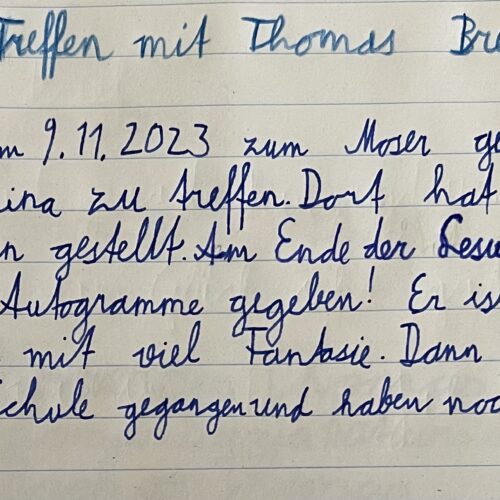 Treffen mit Thomas Bre
m 9.11.2023 zum Moser ge
ina zu treffen. Dort hat
n gestellt. Am Ende der Lesu
Autogramme gegeben! Er is
mit viel Fantasie. Dann
Schule gegangen und haben noc